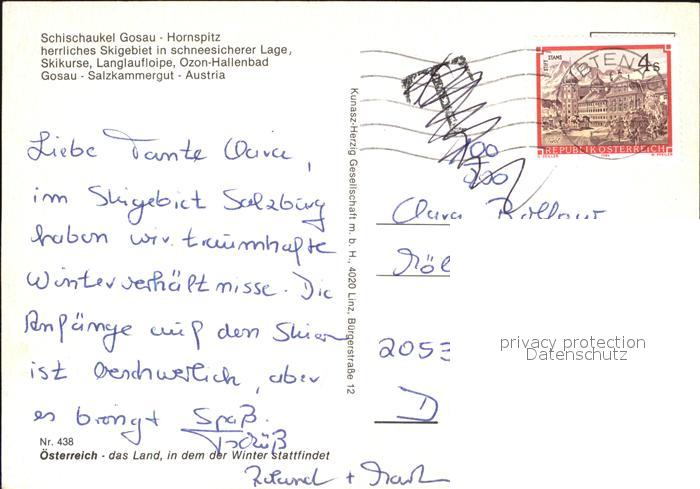 Schischaukel Gosau - Hornspitz
herrliches Skigebiet in schneesicherer Lage,
Skikurse, Langlaufloipe, Ozon-Hallenbad
Gosau - Salzkammergut - Austria
Liebe Tante Clara,
im Skigebiet Salzburg
haben wir traumhafte
Winterverhältnisse. Die
Anfänge auf den Skiern
ist beschwerlich, aber
es bringt Spaß.
Tschüß
Roland +
Nr. 438
Österreich - das Land, in dem der Winter stattfindet
Kunasz-Herzig Gesellschaft m. b. H., 4020 Linz, Bürgerstraße 12
STIFT STAMS
4 S
REPUBLIK ÖSTERREICH
T
100
200
Clara
2053
D
privacy protection
Datenschutz